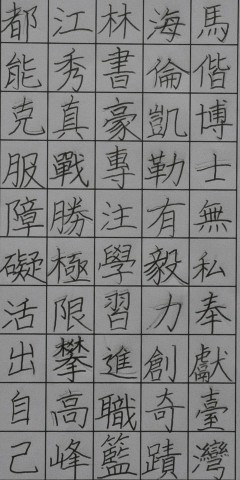 馬偕博士無私奉獻臺灣
海倫凱勒有毅力創奇蹟
林書豪專注學習進職籃
江秀真戰勝極限攀高峰
都能克服障礙活出自己